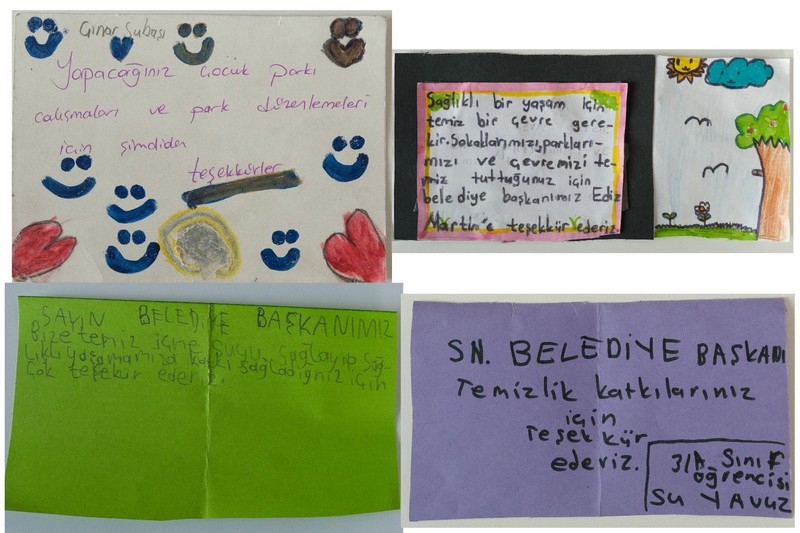 Çınar Subaşı
Yapacağınız çocuk parkı
calışmaları ve park düzenlemeleri
için şimdiden
teşekkürler
Sağlıklı bir yaşam için
temiz bir çevre gere-
kir. Sokaklarımızı, parkları-
mızı ve çevremizi te-
miz tuttuğunuz için
belediye başkanımız Ediz
Martin'e teşekkür ederiz
SAYIN BELEDİYE BAŞKANIMIZ
Bize temiz içme suyu sağlayıp sağ-
lıklı yaşamamıza katkı sağladığınız için
çok teşekür ederiz.
SN. BELEDİYE BAŞKANI
Temizlik katkılarınız
için
Teşekkür
ederiz.
3/A Sınıf
öğrencisi
SU YAVUZ